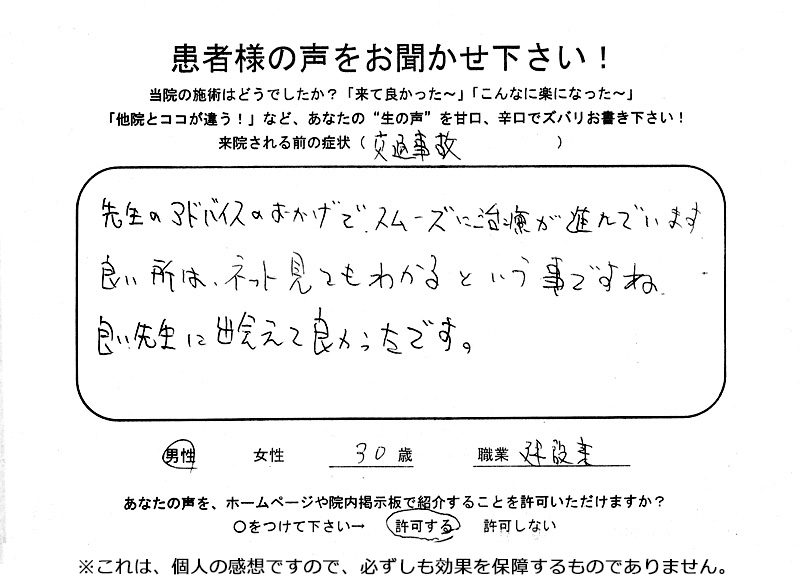 患者様の声をお聞かせ下さい！
当院の施術はどうでしたか？「来て良かった～」「こんなに楽になった～」
「他院とココが違う！」など、あなたの“生の声”を甘口、辛口でズバリお書き下さい！
来院される前の症状（ 交通事故 ）
先生のアドバイスのおかげで、スムーズに治療が進んでいます
良い所は、ネット見てもわかるという事ですね。
良い先生に出会えて良かったです。
男性 女性 30歳 職業 建設業
あなたの声を、ホームページや院内掲示板で紹介することを許可いただけますか？
○をつけて下さい→ 許可する 許可しない
※これは、個人の感想ですので、必ずしも効果を保障するものでありません。